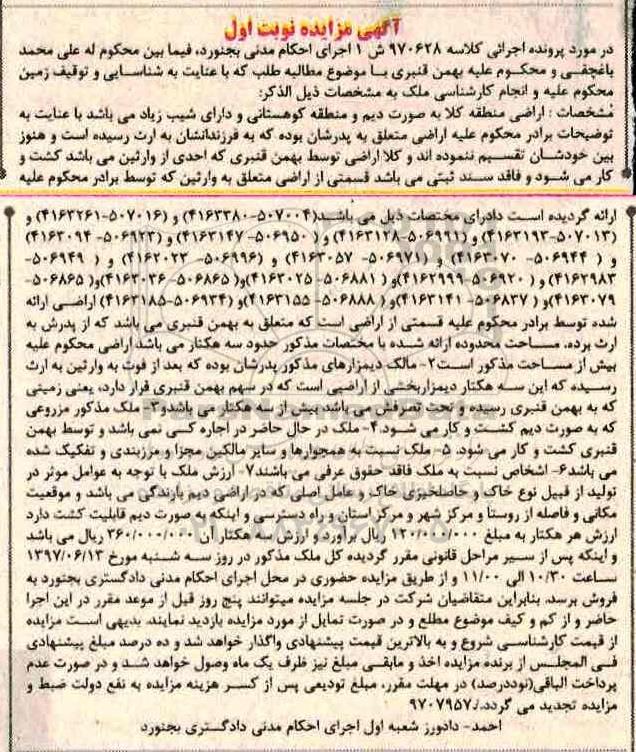 آگهی مزایده نوبت اول
در مورد پرونده اجرائی کلاسه ۹۷۰۶۲۸ ش ۱ اجرای احکام مدنی بجنورد، فیما بین محکوم له علی محمد
باغچقی و محکوم علیه بهمن قنبری با موضوع مطالبه طلب که با عنایت به شناسایی و توقیف زمین
محکوم علیه و انجام کارشناسی ملک به مشخصات ذیل الذکر:
مشخصات : اراضی منطقه کلا به صورت دیم و منطقه کوهستانی و دارای شیب زیاد می باشد با عنایت به
توضیحات برادر محکوم علیه اراضی متعلق به پدرشان بوده که به فرزندانشان به ارث رسیده است و هنوز
بین خودشان تقسیم ننموده اند و کلا اراضی توسط بهمن قنبری که احدی از وارثین می باشد کشت و
کار می شود و فاقد سند ثبتی می باشد قسمتی از اراضی متعلق به وارثین که توسط برادر محکوم علیه
ارائه گردیده است دادرای مختصات ذیل می باشد(۵۰۷۰۰۴-۴۱۶۳۳۸۰) و (۵۰۷۰۱۶-۴۱۶۳۲۶۱) و
(۵۰۷۰۱۳-۴۱۶۳۱۹۳) و (۵۰۶۹۹۱-۴۱۶۳۱۲۸) و ( ۵۰۶۹۵۰- ۴۱۶۳۱۴۷) و (۵۰۶۹۲۳- ۴۱۶۳۰۹۴)
و ( ۵۰۶۹۴۴- ۴۱۶۳۰۷۰) و (۵۰۶۹۷۱- ۴۱۶۳۰۵۷) و (۵۰۶۹۹۶- ۴۱۶۲۰۲۳) و ( ۵۰۶۹۴۹-
۴۱۶۲۹۸۳)و ( ۵۰۶۹۲۰- ۴۱۶۲۹۹۹)و ( ۵۰۶۸۸۱- ۴۱۶۳۰۲۵)و( ۵۰۶۸۶۵- ۴۱۶۳۰۳۶)و( ۵۰۶۸۶۵-
۴۱۶۳۰۷۹)و ( ۵۰۶۸۳۷- ۴۱۶۳۱۴۱)و ( ۵۰۶۸۸۸- ۴۱۶۳۱۵۵)و (۵۰۶۹۳۴-۴۱۶۳۱۸۵) اراضی ارائه
شده توسط برادر محکوم علیه قسمتی از اراضی است که متعلق به بهمن قنبری می باشد که از پدرش به
ارث برده. مساحت محدوده ارائه شده با مختصات مذکور حدود سه هکتار می باشد اراضی محکوم علیه
بیش از مساحت مذکور است۲- مالک دیمزارهای مذکور پدرشان بوده که بعد از فوت به وارثین به ارث
رسیده که این سه هکتار دیمزاربخشی از اراضیی است که در سهم بهمن قنبری قرار دارد، یعنی زمینی
که به بهمن قنبری رسیده و تحت تصرفش می باشد بیش از سه هکتار می باشد و۳- ملک مذکور مزروعی
که به صورت دیم کشت و کار می شود.۴- ملک در حال حاضر در اجاره کی نمی باشد و توسط بهمن
قنبری کشت و کار می شود. ۵- ملک نسبت به همجوارها و سایر مالکین مجزا و مرزبندی و تفکیک شده
می باشد۶- اشخاص نسبت به ملک فاقد حقوق عرفی می باشند۷- ارزش ملک با توجه به عوامل موثر در
تولید از قبیل نوع خاک و حاصلخیزی خاک و عامل اصلی که در اراضی دیم بارندگی می باشد و موقعیت
مکانی و فاصله از روستا و مرکز شهر و مرکز استان و راه دسترسی و اینکه به صورت دیم قابلیت کشت دارد
ارزش هر هکتار به مبلغ ۱۲۰/۰۰۰/۰۰۰ ریال برآورد و ارزش سه هکتار آن ۳۶۰/۰۰۰/۰۰۰ ریال می باشد
و اینکه پس از سیر مراحل قانونی مقرر گردیده کل ملک مذکور در روز سه شنبه مورخ ۱۳۹۷/۰۶/۱۳
ساعت ۱۰/۳۰ الی ۱۱/۰۰ و از طریق مزایده حضوری در محل اجرای احکام مدنی دادگستری بجنورد به
فروش برسد. بنابراین متقاضیان شرکت در جلسه مزایده میتوانند پنج روز قبل از موعد مقرر در این اجرا
حاضر و از کم و کیف موضوع مطلع و در صورت تمایل از مورد مزایده بازدید نمایند. بدیهی است مزایده
از قیمت کارشناسی شروع و به بالاترین قیمت پیشنهادی واگذار خواهد شد و ده درصد مبلغ پیشنهادی
فی المجلس از برنده مزایده اخذ و مابقی مبلغ نیز ظرف یک ماه وصول خواهد شد و در صورت عدم
پرداخت الباقی(نوددرصد) در مهلت مقرر، مبلغ تودیعی پس از کسر هزینه مزایده به نفع دولت ضبط و
مزایده تجدید می گردد./۹۷۰۷۹۵۷
احمد- دادورز شعبه اول اجرای احکام مدنی دادگستری بجنورد